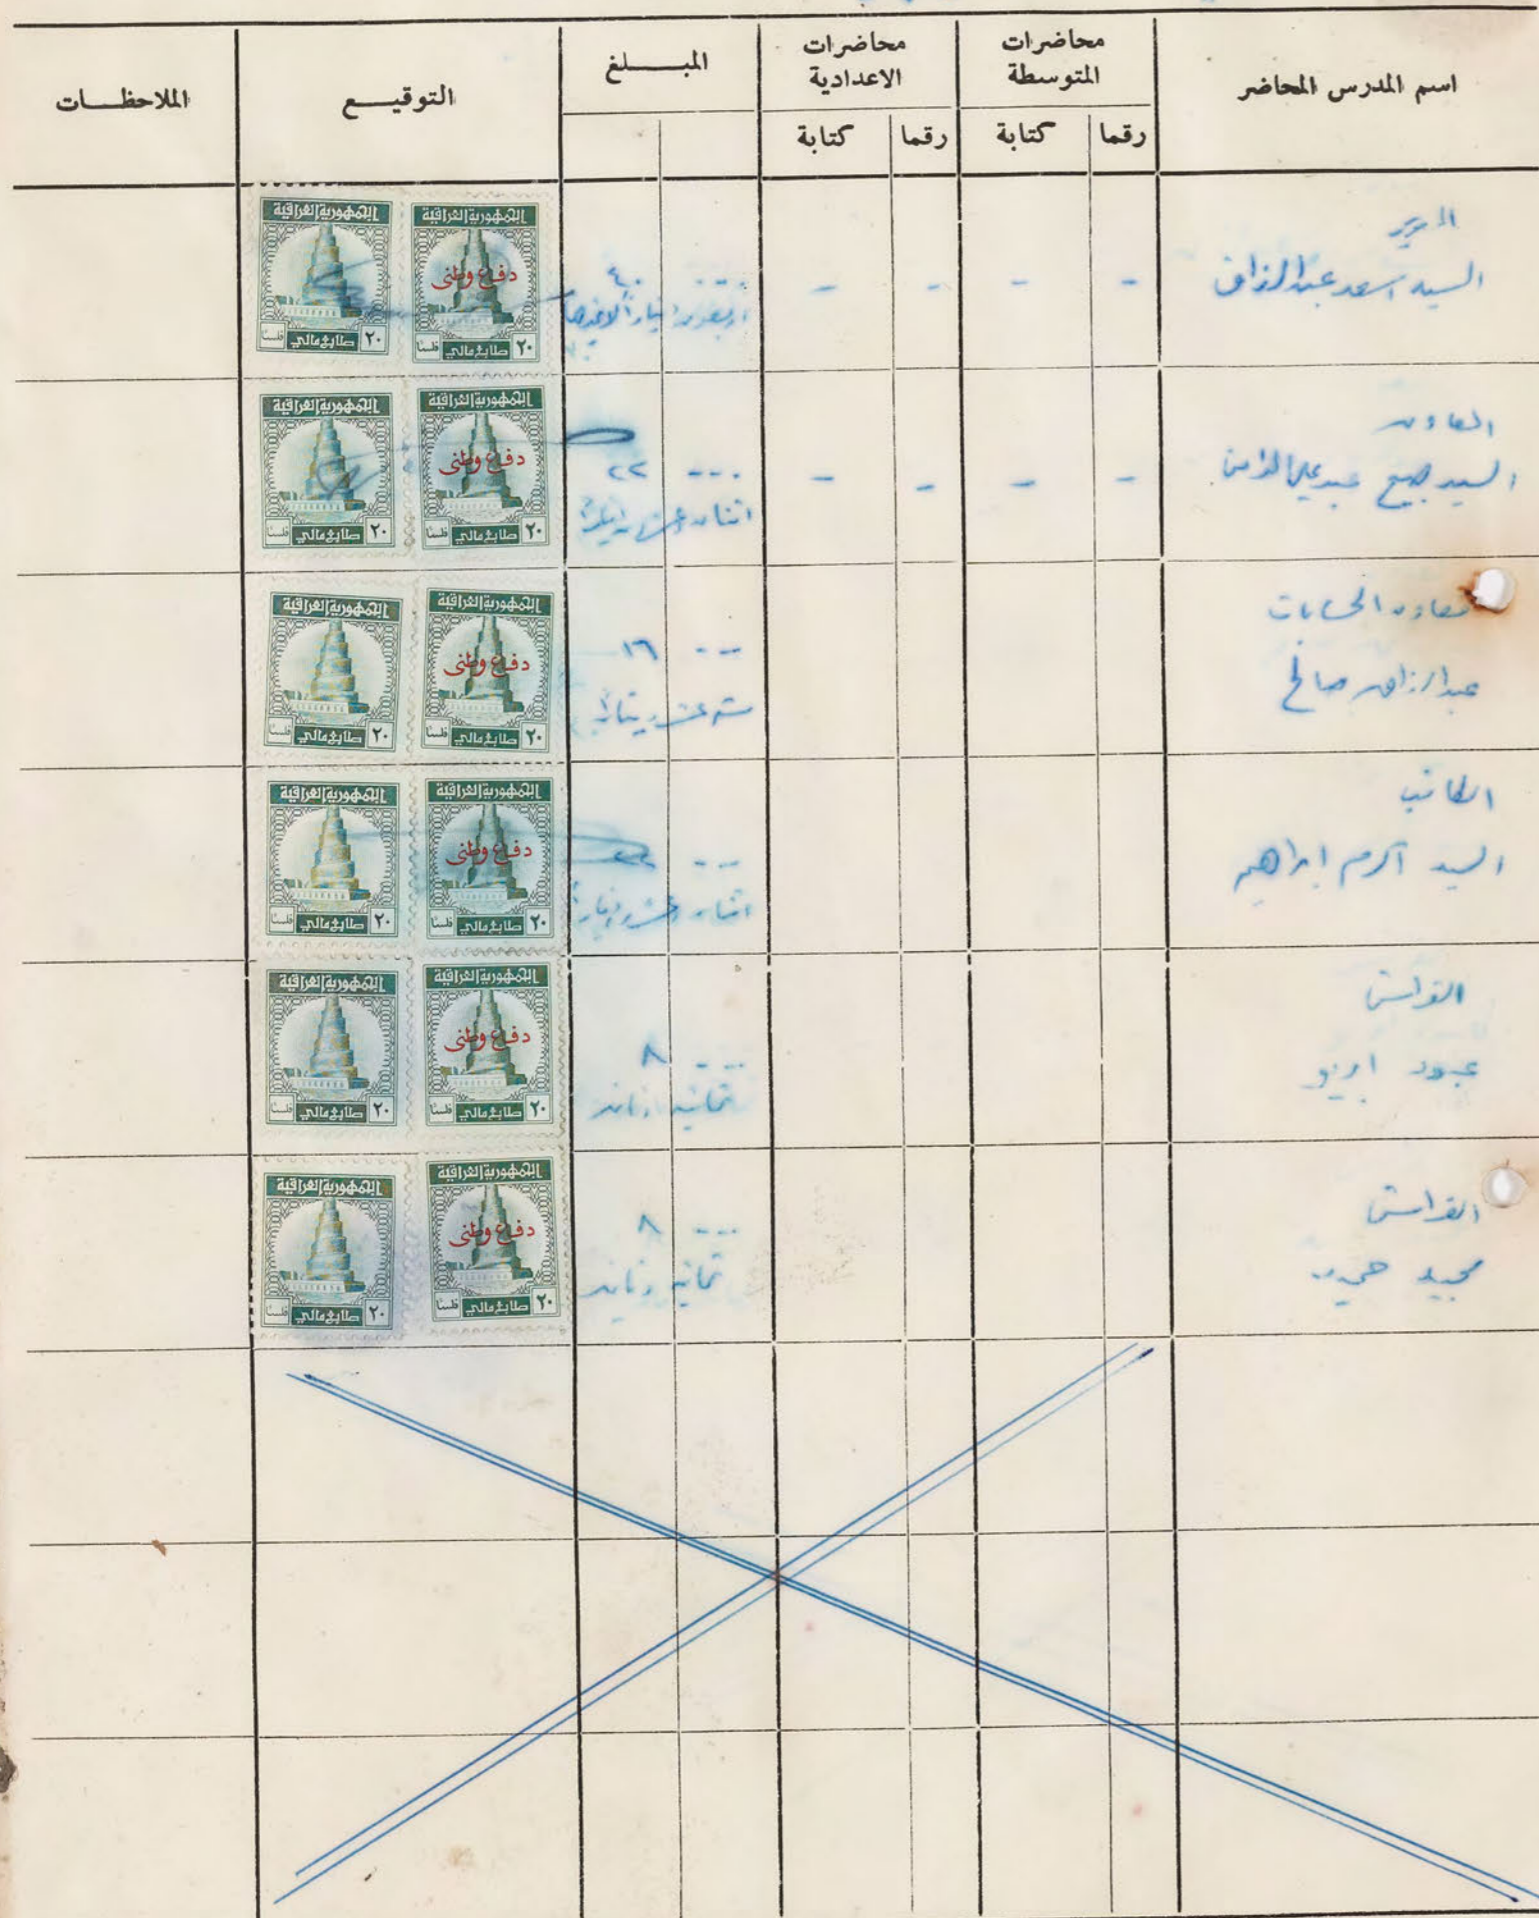 اسم المدرس المحاضر
محاضرات المتوسطة
رقما
كتابة
محاضرات الاعدادية
رقما
كتابة
المبـــلغ
التوقيـــع
الملاحظـــات
المدير
السيد اسعد عبد الرزاق
- - - -
٤٠ ...
الجمهورية العراقية
دفاع وطني
٢٠ طابع مالي فلسا
الجمهورية العراقية
٢٠ طابع مالي فلسا
المعاون
السيد
- - - -
٢٢ ...
اثنان وعشرون دينارا
الجمهورية العراقية
دفاع وطني
٢٠ طابع مالي فلسا
الجمهورية العراقية
٢٠ طابع مالي فلسا
معاون الحسابات
عبد الرزاق صالح
١٦ ...
ستة عشر دينارا
الجمهورية العراقية
دفاع وطني
٢٠ طابع مالي فلسا
الجمهورية العراقية
٢٠ طابع مالي فلسا
الكاتب
السيد اكرم ابراهيم
٢٢ ...
اثنان وعشرون دينارا
الجمهورية العراقية
دفاع وطني
٢٠ طابع مالي فلسا
الجمهورية العراقية
٢٠ طابع مالي فلسا
الفراش
عبود
٨ ...
ثمانية دنانير
الجمهورية العراقية
دفاع وطني
٢٠ طابع مالي فلسا
الجمهورية العراقية
٢٠ طابع مالي فلسا
الفراش
مجيد
٨ ...
ثمانية دنانير
الجمهورية العراقية
دفاع وطني
٢٠ طابع مالي فلسا
الجمهورية العراقية
٢٠ طابع مالي فلسا